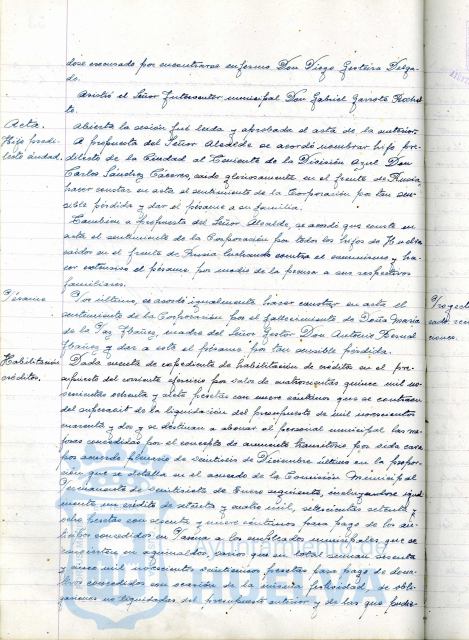 dose excusado por encontrarse enfermo Don Diego Gesteira Delga-
do.
Asistió el Señor Interventor municipal Don Gabriel Garrote
to.
Acta.
Abierta la sesión fué leida y aprobada el acta de la anterior.
Hijo predi-
lecto ciudad.
A propuesta del Señor Alcalde se acordó nombrar hijo pre-
dilecto de la Ciudad al Teniente de la División Azul Don
Carlos Sánchez Cáceres, caido gloriosamente en el frente de Rusia,
hacer constar en acta el sentimiento de la Corporación por tan sen-
sible pérdida y dar el pésame a su familia.
También a propuesta del Señor Alcalde, se acordó que conste en
acta el sentimiento de la Corporación por todos los hijos de Huelva
caidos en el frente de Rusia luchando contra el comunismo y ha-
cer extensivo el pésame por medio de la prensa a sus respectivos
familiares.
Pésame
Por último, se acordó igualmente hacer constar en acta el
sentimiento de la Corporación por el fallecimiento de Doña Maria
de la Paz Ibañez, madre del Señor Gestor Don Antonio
Ibañez y dar a este el pésame por tan sensible pérdida.
Habilitación
créditos.
Dada cuenta de expediente de habilitación de créditos en el pre-
supuesto del corriente ejercicio por valor de cuatrocientas quince mil no-
vecientas ochenta y siete pesetas con nueve céntimos que se contraen
del superavit de la liquidación del presupuesto de mil novecientos
cuarenta y dos y se destinan a abonar al personal municipal las me-
joras concedidas por el concepto de aumento transitorio por vida cara
por acuerdo plenario de veintiseis de Diciembre último en la propor-
ción que se detalla en el acuerdo de la Comisión Municipal
Permanente de veintisiete de Enero siguiente, incluyendose igual-
mente un crédito de ochenta y cuatro mil, setecientas setenta y
ocho pesetas con
tículos concedidos en Pascua a los empleados municipales que se
mil novecientas pesetas para pago de
concedidos con ocasión de la misma festividad, de obli-
gaciones no liquidadas del presupuesto anterior y de las que
Proyect